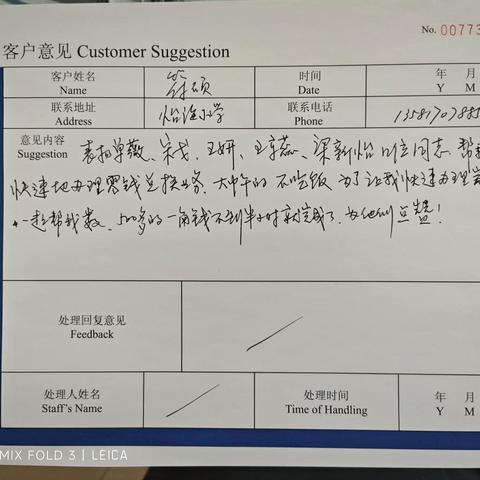 No. 00773
客户意见 Customer Suggestion
客户姓名 时间 年 月
Name Date Y M
联系地址 怡海小学 联系电话
Address Phone
意见内容 表扬单薇、宋戈、王妍、王 、梁新怡 位同志 帮
Suggestion
快速地办理零钱兑换业务. 大中午的不吃饭 为了让我快速办理
一起帮我数. 500多的一角钱不到半小时就完成了. 为他们点赞!
处理回复意见
Feedback
处理人姓名 处理时间 年 月
Staff's Name Time of Handling Y M
MIX FOLD 3 | LEICA